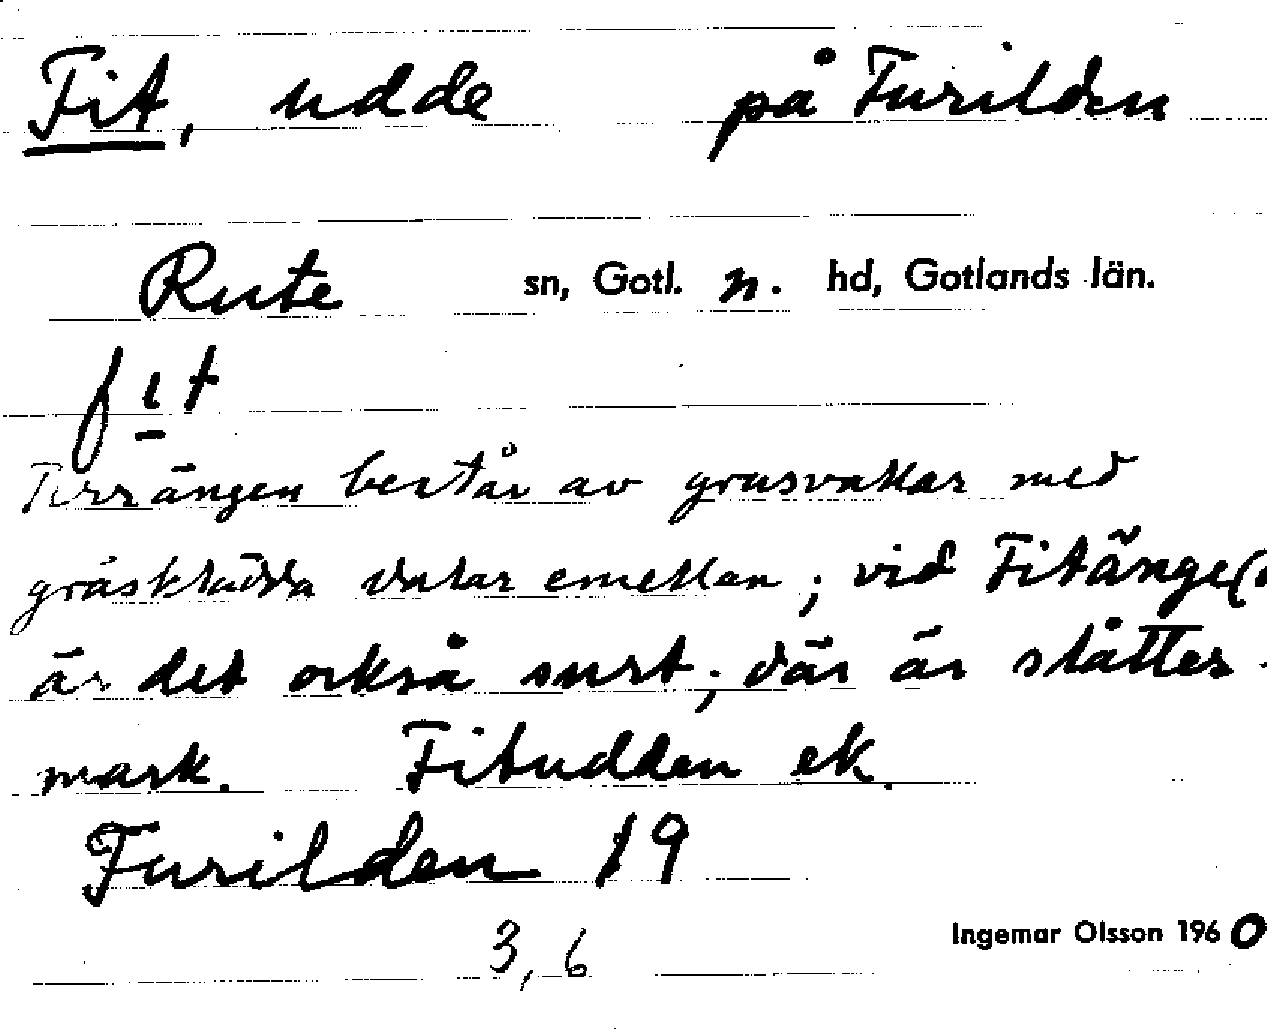 Fit, udde på Furilden
Rute sn, Gotl. n. hd, Gotlands län.
fit
Terrängen består av grusvallar med
gräsklädda dalar emellan; vid Fitänge(
är det också surt; där är slåtter-
mark. Fitudden ek.
Furilden 19
3,6
Ingemar Olsson 1960